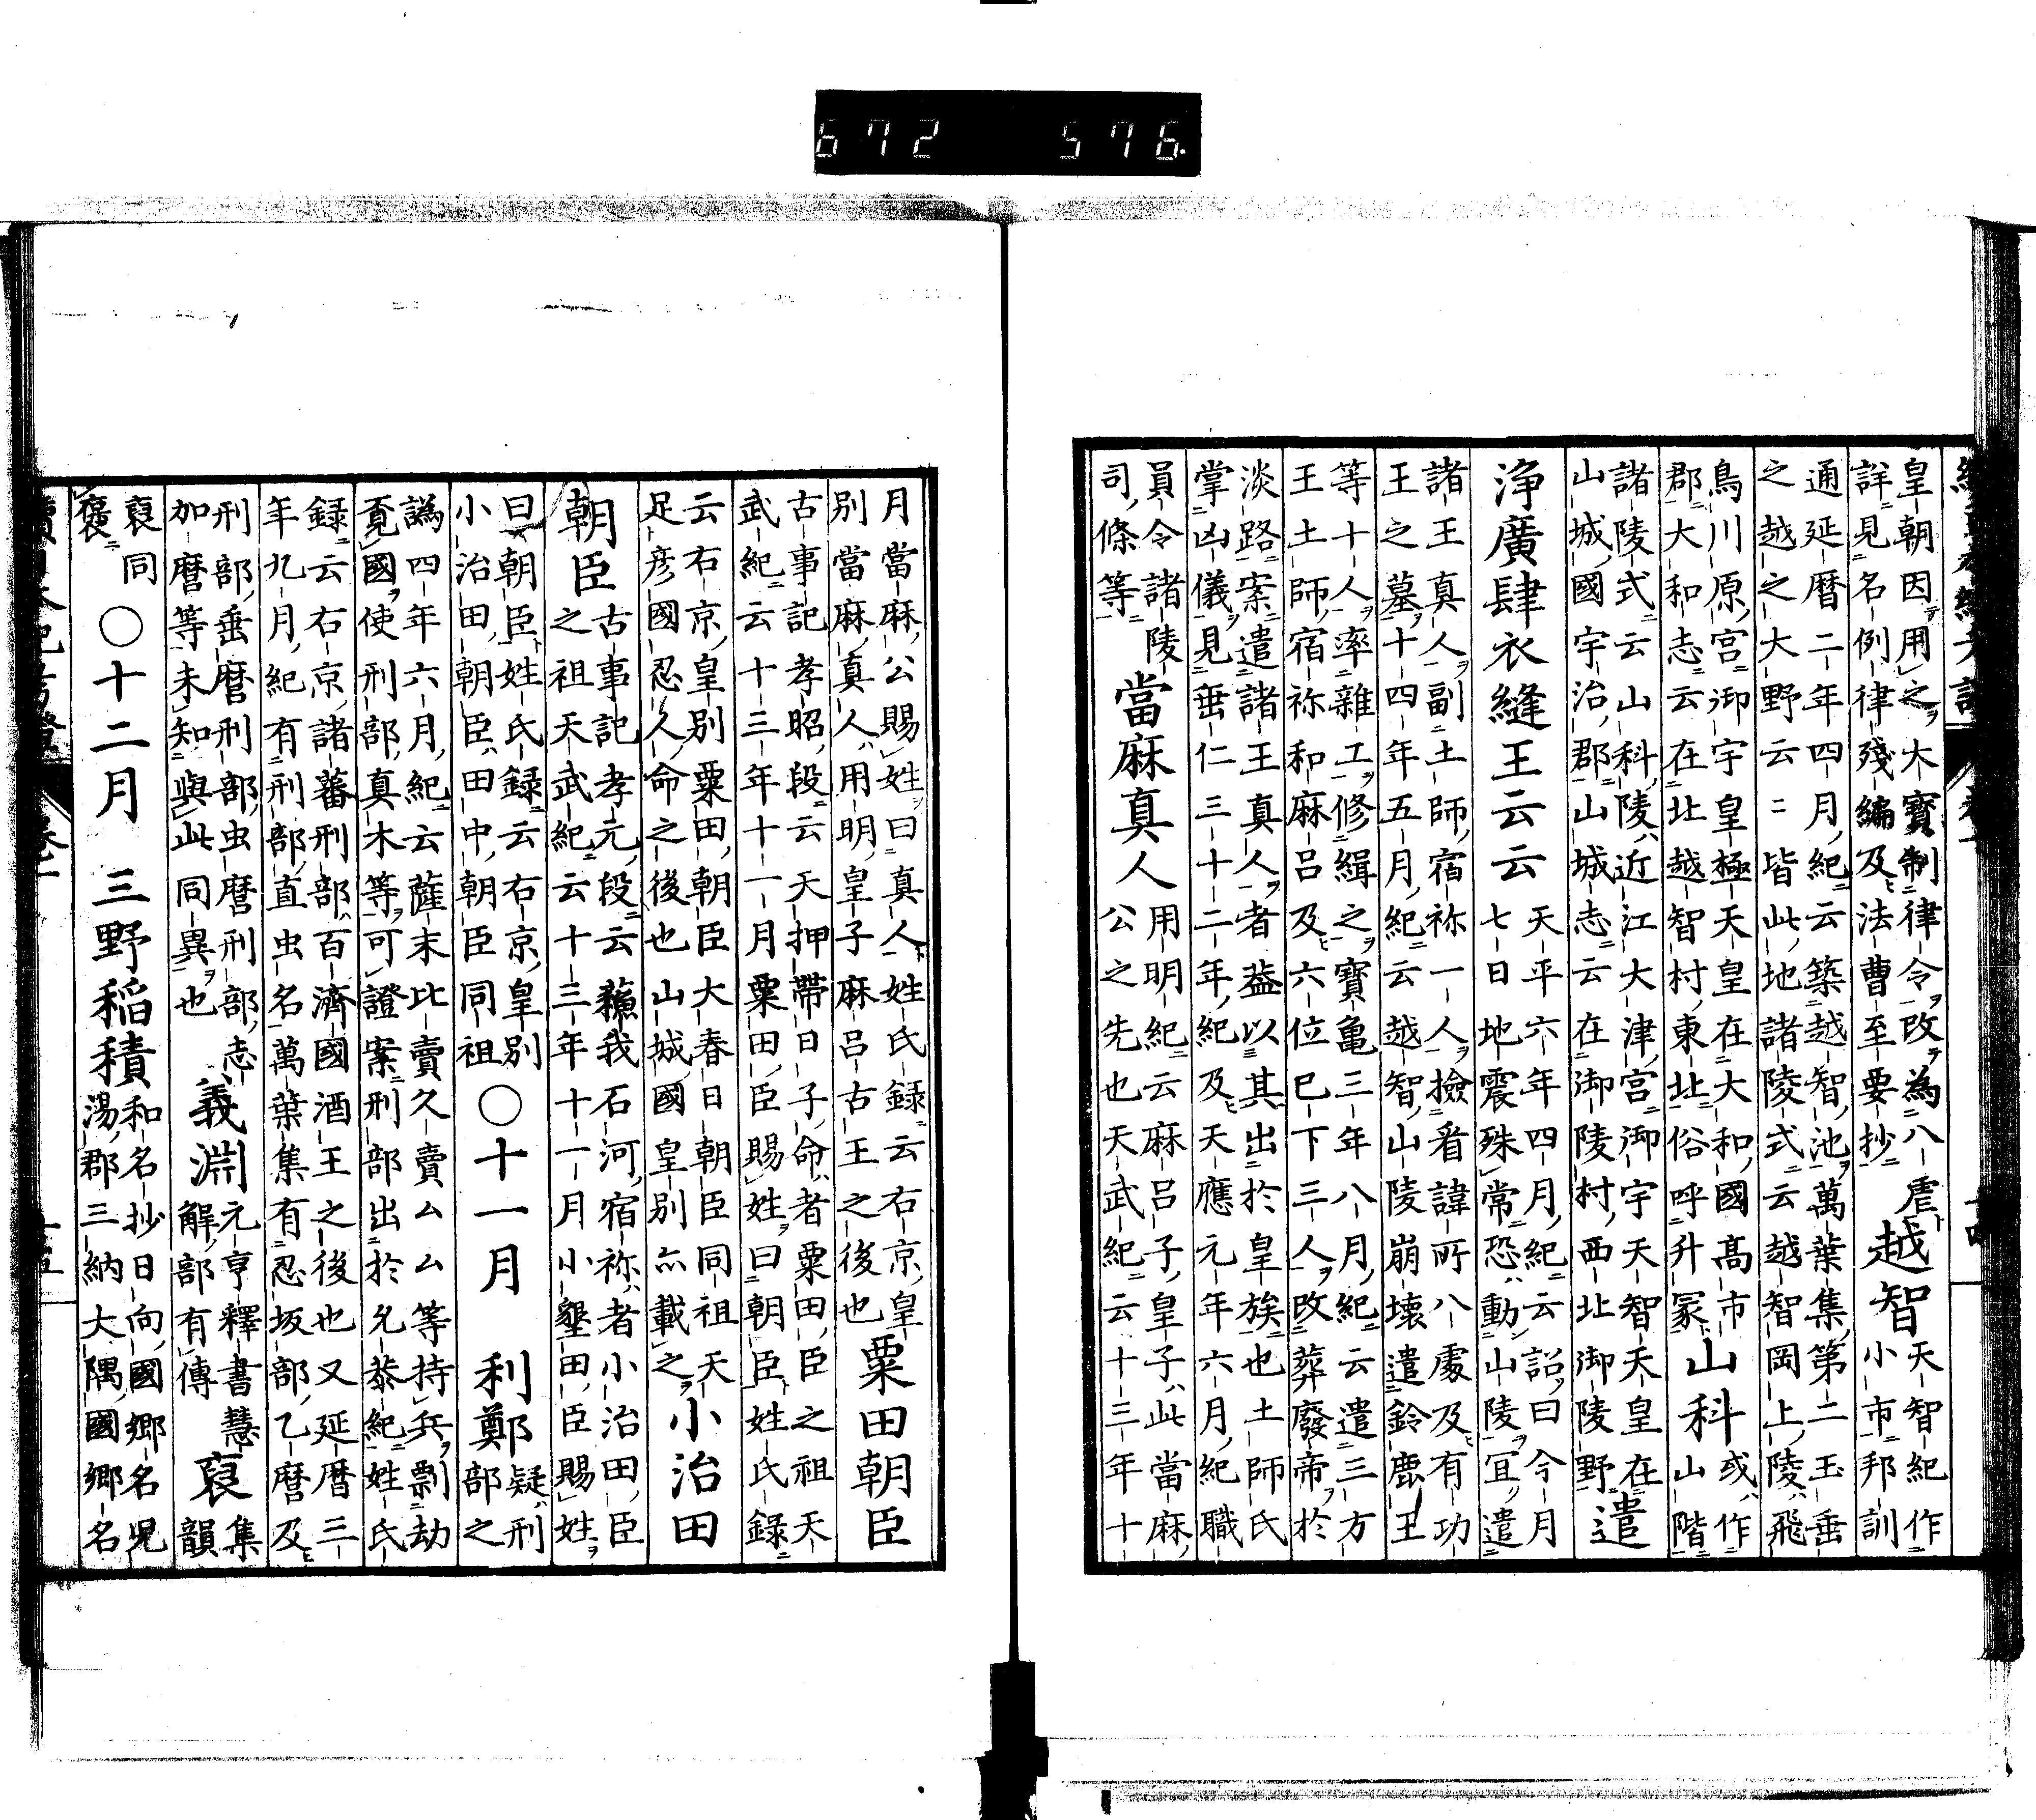 672 576.
皇朝因用之大寶制律令改為八虐
詳見名例律殘編及法曹至要抄
越智
天智紀作
小市邦訓
通延暦二年四月紀云築越智池萬葉集第二玉垂
之越之大野云〻皆此地諸陵式云越智岡上陵飛
鳥川原宮御宇皇極天皇在大和國髙市
郡大和志云在北越智村東北俗呼升冢
山科
或作
山階
諸陵式云山科陵近江大津宮御宇天智天皇在
山城國宇治郡山城志云在御陵村西北御陵野
遣
淨廣肆衣縫王云云
天平六年四月紀云詔曰今月
七日地震殊常恐動山陵宜遣
諸王真人副土師宿祢一人撿看諱所八處及有功
王之墓十四年五月紀云越智山陵崩壊遣鈴鹿王
等十人率雜工修緝之寶亀三年八月紀云遣三方
王土師宿祢和麻呂及六位已下三人改葬廢帝於
淡路案遣諸王真人者益以其出於皇族也土師氏
掌凶儀見垂仁三十二年紀及天應元年六月紀職
員令諸陵
司條等
當麻真人
用明紀云麻呂子皇子此當麻
公之先也天武紀云十三年十
月當麻公賜姓曰真人姓氏録云右京皇
別當麻真人用明皇子麻呂古王之後也
粟田朝臣
古事記孝昭段云天押帶日子命者粟田臣之祖天
武紀云十三年十一月粟田臣賜姓曰朝臣姓氏録
云右京皇別粟田朝臣大春日朝臣同祖天
足彦國忍人命之後也山城國皇別亦載之
小治田
朝臣
古事記孝元段云蘓我石河宿祢者小治田臣
之祖天武紀云十三年十一月小墾田臣賜姓
曰朝臣姓氏録云右京皇別
小治田朝臣田中朝臣同祖
○十一月
利鄭
疑刑
部之
譌四年六月紀云薩末比賣久賣ムム等持兵剽劫
覔國使刑部真木等可證案刑部出於允恭紀姓氏
録云右京諸蕃刑部百濟國酒王之後也又延暦三
年九月紀有刑部直虫名萬葉集有忍坂部乙麿及
刑部垂麿刑部虫麿刑部志
加麿等未知與此同異也
義淵
元亨釋書慧
解部有傳
裒
集
韻
裒同
襃
○十二月
三野稲積
和名抄日向國郷名児
湯郡三納大隅國郷名